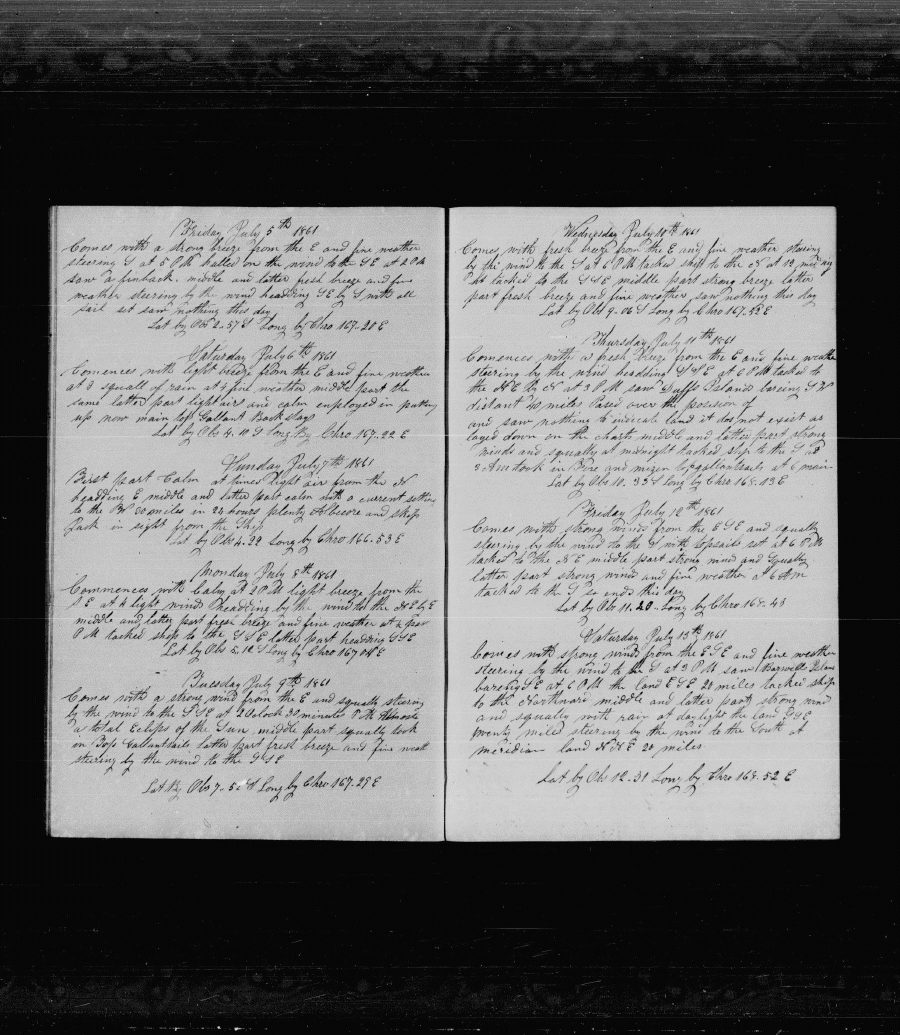 Friday July 5th 1861
Comes with a strong breeze from the E and fine weather
steering S at 5 PM halled on the wind to the SE at 2 PM
saw a finback. middle and latter fresh breeze and fine
weather steering by the wind headding SE by S with all
sail set saw nothing this day
Lat by Obs 2.57 S Long by Chro 167.20 E
Saturday July 6th 1861
Comences with light breeze from the E and fine weather
at 3 squall of rain at 4 fine weather middle part the
same latter part light airs and calm employed in putting
up new main top Gallant Backstays
Lat by Obs 4.10 S Long By Chro 167.22 E
Sunday July 7th 1861
First part Calm at times light air from the N
headding E middle and latter part calm with a current setting
to the W 60 miles in 24 hours plenty Albecore and skip
Jack in sight from the Ship
Lat by Obs 4.22 Long by Chro 166.53 E
Monday July 8th 1861
Commences with Calm at 2 PM light breeze from the
S E at 4 light winds headding by the wind to the N E by E
middle and latter part fresh breeze and fine weather at 4 par
PM tacked ship to the S S E latter part headding SSE
Lat by Obs 5.12 S Long by Chro 167 E
Tuesday July 9th 1861
Comes with a strong wind from the E and squally steering
by the wind to the S S E at 2 Oclock 30 minutes PM Allmoste
a total Eclips of the Sun, middle part squally took
in Top Gallantsails latter part fresh breeze and fine weath
steering by the wind to the S S E
Lat By Obs 7.5 Long by Chro 167.29 E
Wednesday July 10th 1861
Comes with fresh breeze from the E and fine weather steering
by the wind to the S at 6 PM tacked ship to the N at 12 mid
tacked to the S S E middle part strong breeze latter
part fresh breeze and fine weather saw nothing this day
Lat by Obs 9.06 S Long by Chro 167.52 E
Thursday July 11th 1861
Comences with a fresh breeze from the E and fine weather
steering by the wind headding S S E at 6 PM tacked to
the N E By N at 3 PM saw Duffs Islands bearing S W
distant 40 miles Pased over the posision of
and saw nothing to indicate land it does not exist as
layed down on the charts middle and latter part strong
winds and squally at midnight tacked ship to the S at
3 Am took in Fore and mizen topgallantsails at 6 main
Lat by Obs 10.33 S Long by Chro 168.13 E
Friday July 12th 1861
Comes with strong winds from the E S E and squally
steering by the wind to the S with Topsails set at 6 PM
tacked to the N E middle part strong wind and squally
latter part strong wind and fine weather at 6 Am
tacked to the S so ends this day
Lat by Obs 11.20 Long by Chro 168.43
Saturday July 13th 1861
Comes with strong winds from the E S E and fine weather
steering by the wind to the S at 3 PM saw Barwells Islans
bareing S E at 6 PM the land E S E 20 miles tacked ship
to the Northward middle and latter part strong wind
and squally with rain at daylight the land E S E
twenty miles steering by the wind to the South at
meridian land N N E 20 miles
Lat by Obs 12.31 Long by Chro 168.52 E